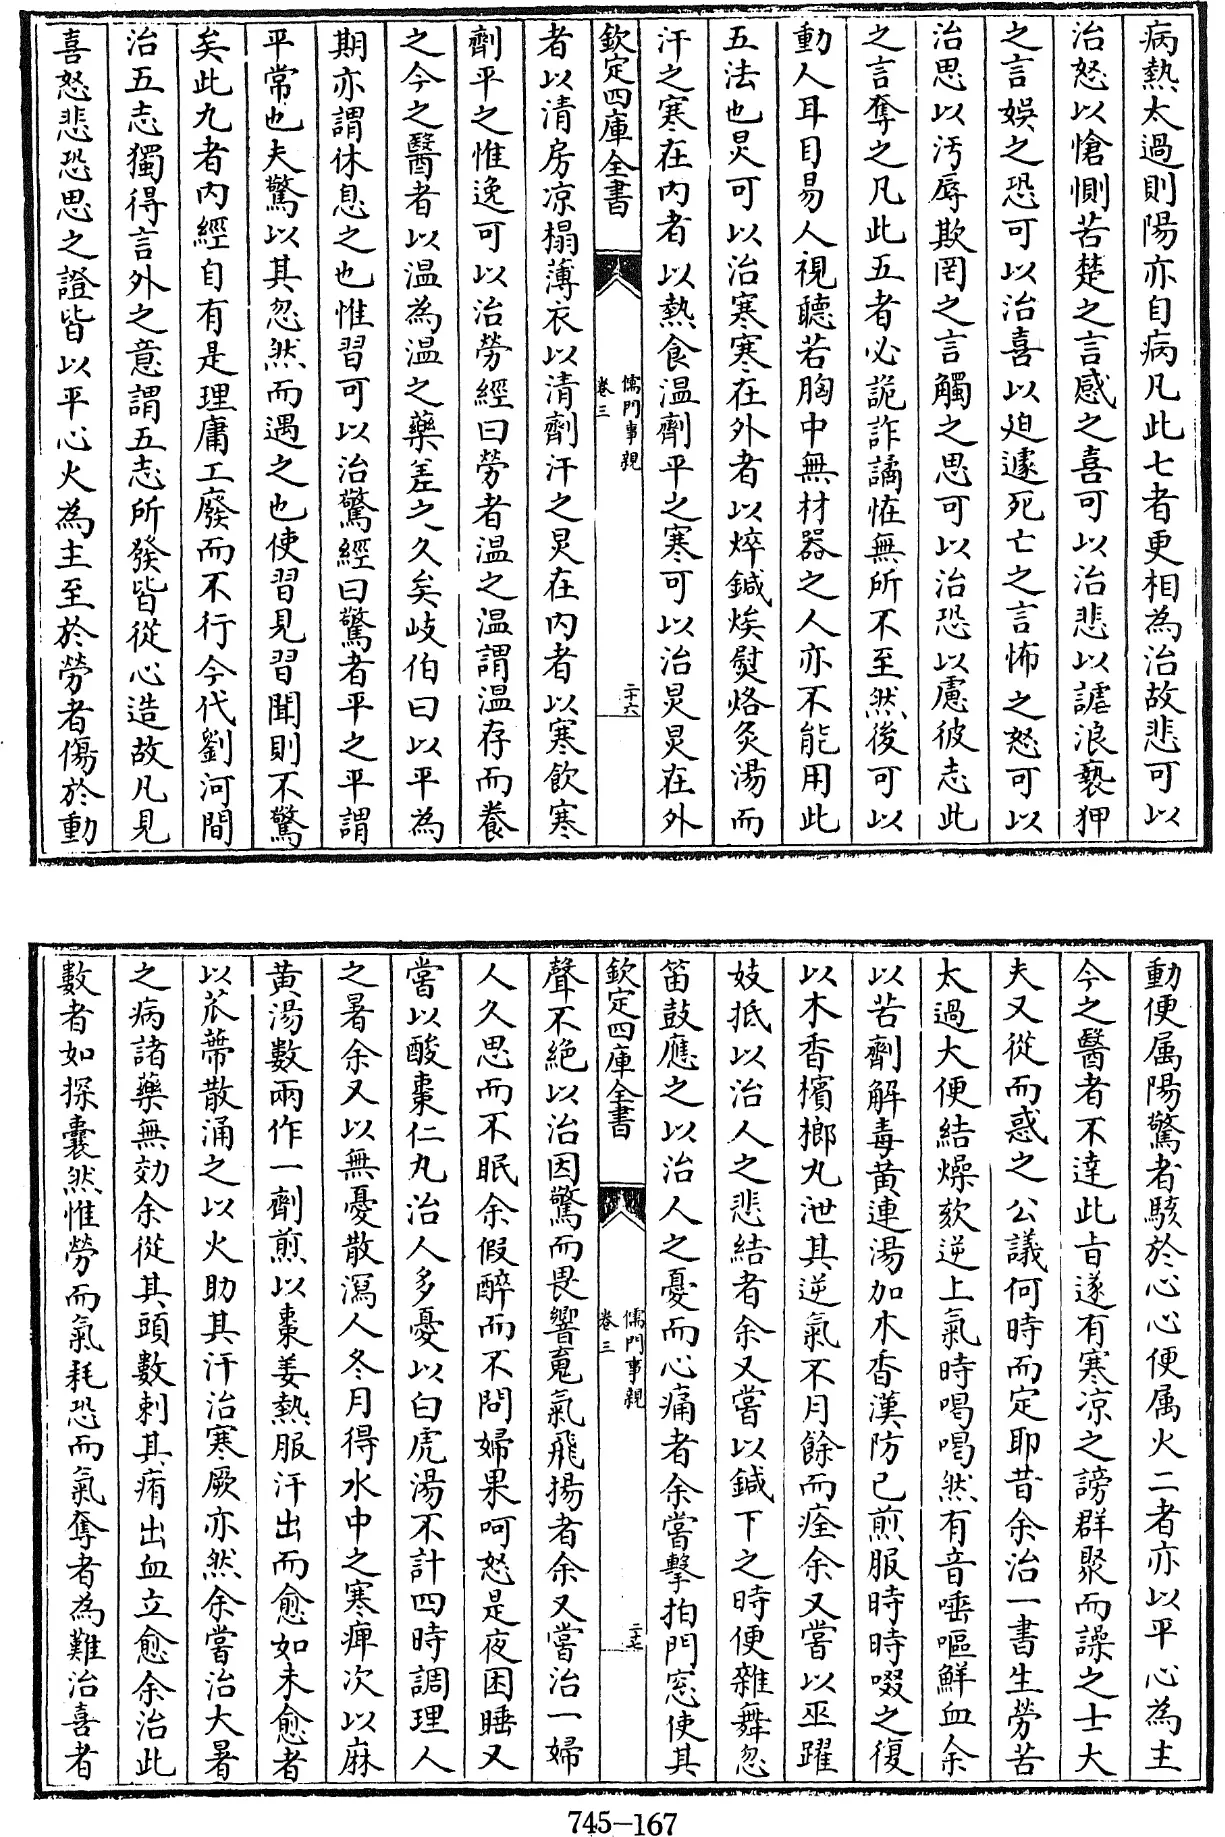 病熱太過則陽亦自病凡此七者更相為治故悲可以
治怒以愴惻苦楚之言感之喜可以治悲以謔浪褻狎
之言娛之恐可以治喜以迫遽死亡之言怖之怒可以
治思以汚辱欺罔之言觸之思可以治恐以慮彼志此
之言奪之凡此五者必詭詐譎恠無所不至然後可以
動人耳目易人視聽若胸中無材器之人亦不能用此
五法也炅可以治寒寒在外者以焠鍼焫熨烙灸湯而
汗之寒在内者以熱食温劑平之寒可以治炅炅在外
欽定四庫全書
儒門事親
卷三
二十六
者以清房凉榻薄衣以清劑汗之炅在内者以寒飲寒
劑平之惟逸可以治勞經曰勞者温之温謂温存而養
之今之醫者以温為温之藥差之久矣岐伯曰以平為
期亦謂休息之也惟習可以治驚經曰驚者平之平謂
平常也夫驚以其忽然而遇之也使習見習聞則不驚
矣此九者内經自有是理庸工廢而不行今代劉河間
治五志獨得言外之意謂五志所發皆從心造故凡見
喜怒悲恐思之證皆以平心火為主至於勞者傷於動
動便属陽驚者駭於心心便属火二者亦以平心為主
今之醫者不達此旨遂有寒凉之謗群聚而譟之士大
夫又從而惑之公議何時而定耶昔余治一書生勞苦
太過大便結燥欬逆上氣時喝喝然有音唾嘔鮮血余
以苦劑解毒黄連湯加木香漢防已煎服時時啜之復
以木香檳榔丸泄其逆氣不月餘而痊余又嘗以巫躍
妓抵以治人之悲結者余又嘗以鍼下之時便雜舞忽
笛鼓應之以治人之憂而心痛者余嘗擊拍門窓使其
欽定四庫全書
儒門事親
卷三
二十七
聲不絶以治因驚而畏響䰟氣飛揚者余又嘗治一婦
人久思而不眠余假醉而不問婦果呵怒是夜困睡又
嘗以酸棗仁丸治人多憂以白虎湯不計四時調理人
之暑余又以無憂散瀉人冬月得水中之寒痺次以麻
黄湯數兩作一劑煎以棗姜熱服汗出而愈如未愈者
以苽蒂散涌之以火助其汗治寒厥亦然余嘗治大暑
之病諸藥無効余從其頭數刺其痏出血立愈余治此
數者如探囊然惟勞而氣耗恐而氣奪者為難治喜者
745-167